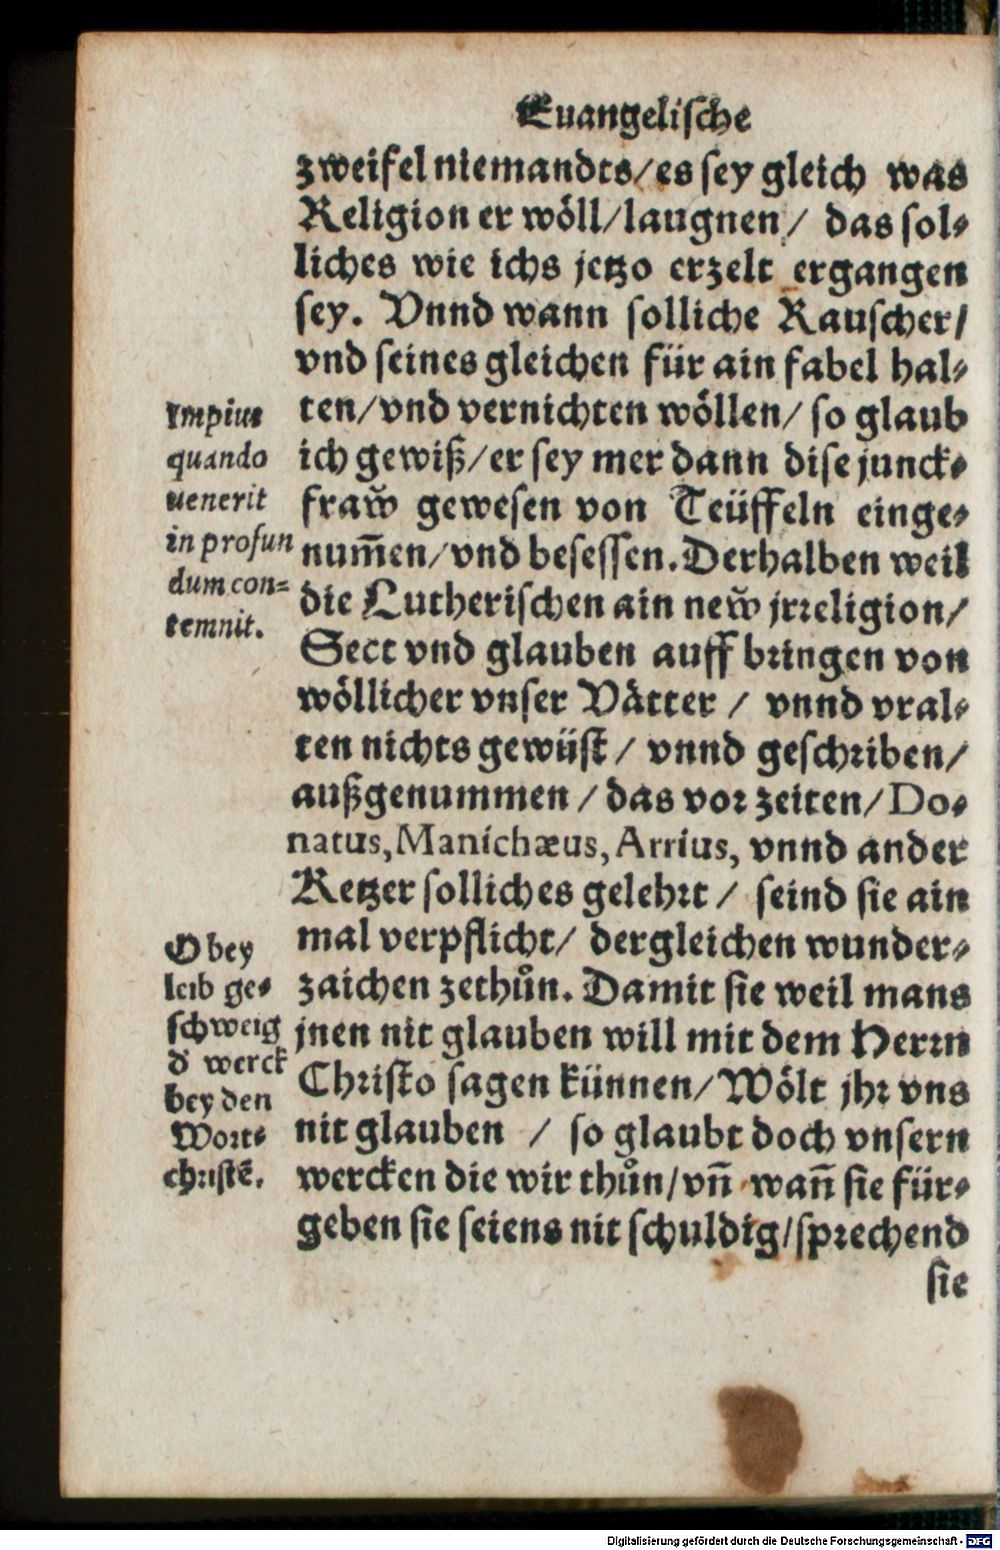 Euangelische
zweifel niemandts/es sey gleich was
Religion er wöll/laugnen/ das sol⸗
liches wie ichs jetzo erzelt ergangen
sey. Vnnd wann solliche Rauscher/
vnd seines gleichen für ain fabel hal⸗
ten/vnd vernichten wöllen/ so glaub
ich gewiß/er sey mer dann dise junck⸗
fraw̃ gewesen von Teüffeln einge⸗
num̃en/vnd besessen.Derhalben weil
die Lutherischen ain new̃ jrreligion/
Sect vnd glauben auff bringen von
wöllicher vnser Vätter / vnnd vral⸗
ten nichts gewüst / vnnd geschriben/
außgenummen / das vor zeiten/Do⸗
natus, Manichæus, Arrius, vnnd ander
Ketzer solliches gelehrt / seind sie ain
mal verpflicht/ dergleichen wunder⸗
zaichen zethůn. Damit sie weil mans
jnen nit glauben will mit dem Herrn
Christo sagen künnen/Wölt jhr vns
nit glauben / so glaubt doch vnsern
wercken die wir thůn/vñ wañ sie für⸗
geben sie seiens nit schuldig/sprechend
sie
Impius
quando
uenerit
in profun
dum con=
temnit.
O bey
leib ge⸗
schweig
d̕ werck
bey den
Wort⸗
christẽ.
Digitalisierung gefördert durch die Deutsche Forschungsgemeinschaft - DFG